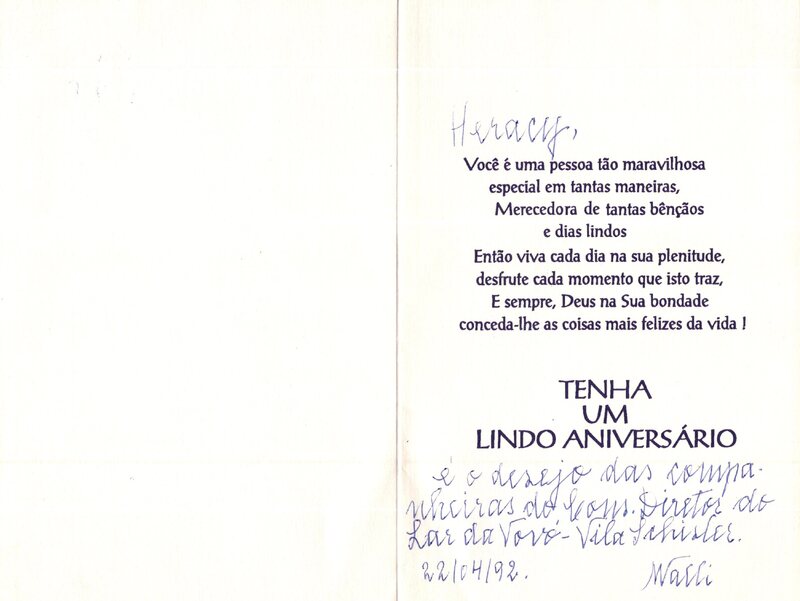 Heracy,
Você é uma pessoa tão maravilhosa
especial em tantas maneiras,
Merecedora de tantas bênçãos
e dias lindos
Então viva cada dia na sua plenitude,
desfrute cada momento que isto traz,
E sempre, Deus na Sua bondade
conceda-lhe as coisas mais felizes da vida !
TENHA
UM
LINDO ANIVERSÁRIO
é o desejo das compa-
nheiras do Cons. Diretor do
Lar da Vovó - Vila Schisler.
22/04/92. Walli